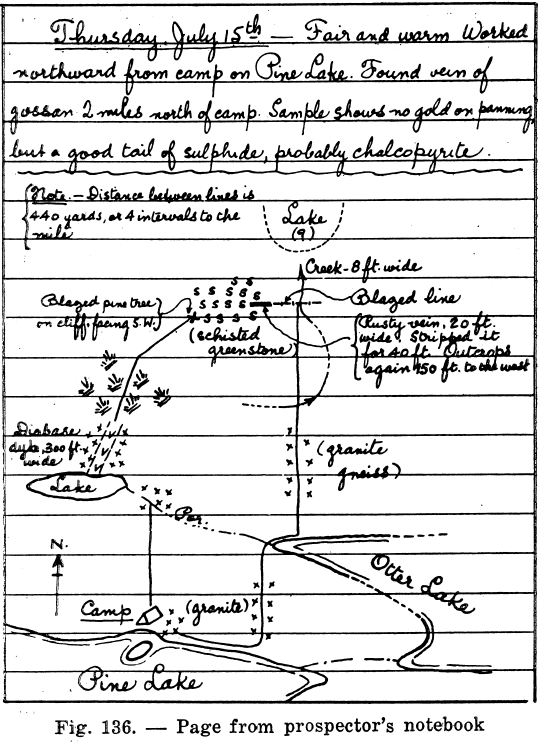 Thursday, July 15th — Fair and warm Worked
northward from camp on Pine Lake. Found vein of
gossan 2 miles north of camp. Sample shows no gold on panning,
but a good tail of sulphide, probably chalcopyrite.
Note. — Distance between lines is
440 yards, or 4 intervals to the
mile
Lake
(?)
Creek - 8 ft. wide
S S
S S S S S
S S S S
S S S S
Blazed pine tree
on cliff, facing S.W.
Blazed line
(schisted
greenstone)
Rusty vein, 20 ft.
wide. Stripped it
for 40 ft. Outcrops
again 150 ft. to the west
Diabase
dyke, 300 ft.
wide
(granite
gneiss)
Lake
Por.
N.
Otter Lake
Camp
(granite)
Pine Lake
Fig. 136. — Page from prospector's notebook